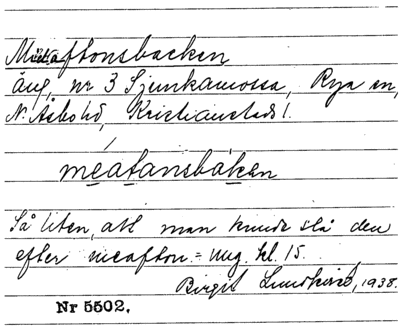 Midaftonsbacken
äng, nr 3 Sjunkamossa, Rya sn,
N. Åsbo hd, Kristianstads l.
meatansbákan
Så liten, att man kunde slå den
efter meafton = ung. kl. 15.
Birgit Lundkvist, 1938.
Nr 5502.